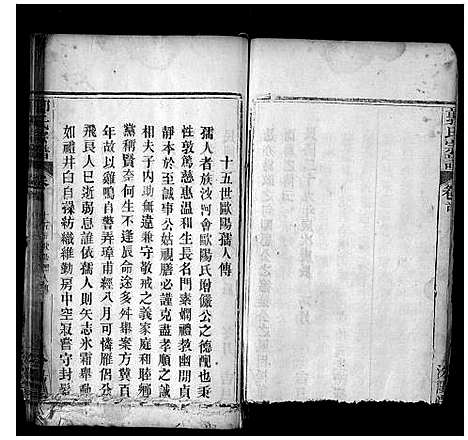 十五世歐陽孺人傳
孺人者族汝河會歐陽氏增儼公之德配也秉
性敦篤慈惠溫和生長名門素嫻禮教幽閒貞
靜本於至誠事公姑視膳必謹克盡孝順之誠
相夫子內助無違兼守敬戒之義家庭和睦鄉
黨稱賢奈何生不逢辰命途多舛舉案方冀百
年故以雞鳴自警弄璋甫經八月可憐雁侶分
飛良人已逝弱息誰依孺人則矢志氷霜舉動
如禮井臼自操紡織維勤房中空寂嘗守封髮